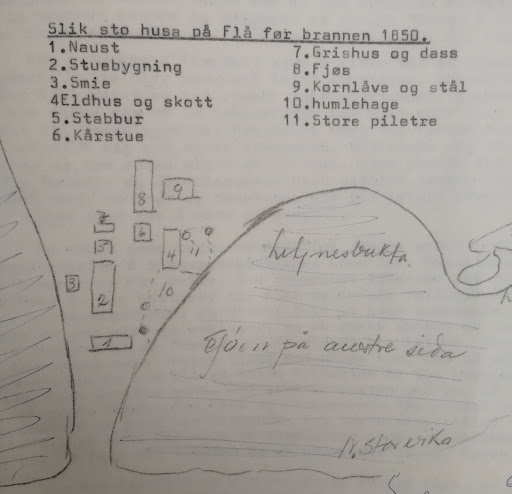 Slik sto husa på Flå før brannen 1850.
1.Naust
2.Stuebygning
3.Smie
4Eldhus og skott
5.Stabbur
6.Kårstue
7.Grishus og dass
8.Fjøs
9.Kornlåve og stål
10.humlehage
11.Store piletre
8
9
7
6
4
11
3
2
10
1
på austre sida
N. Storvika